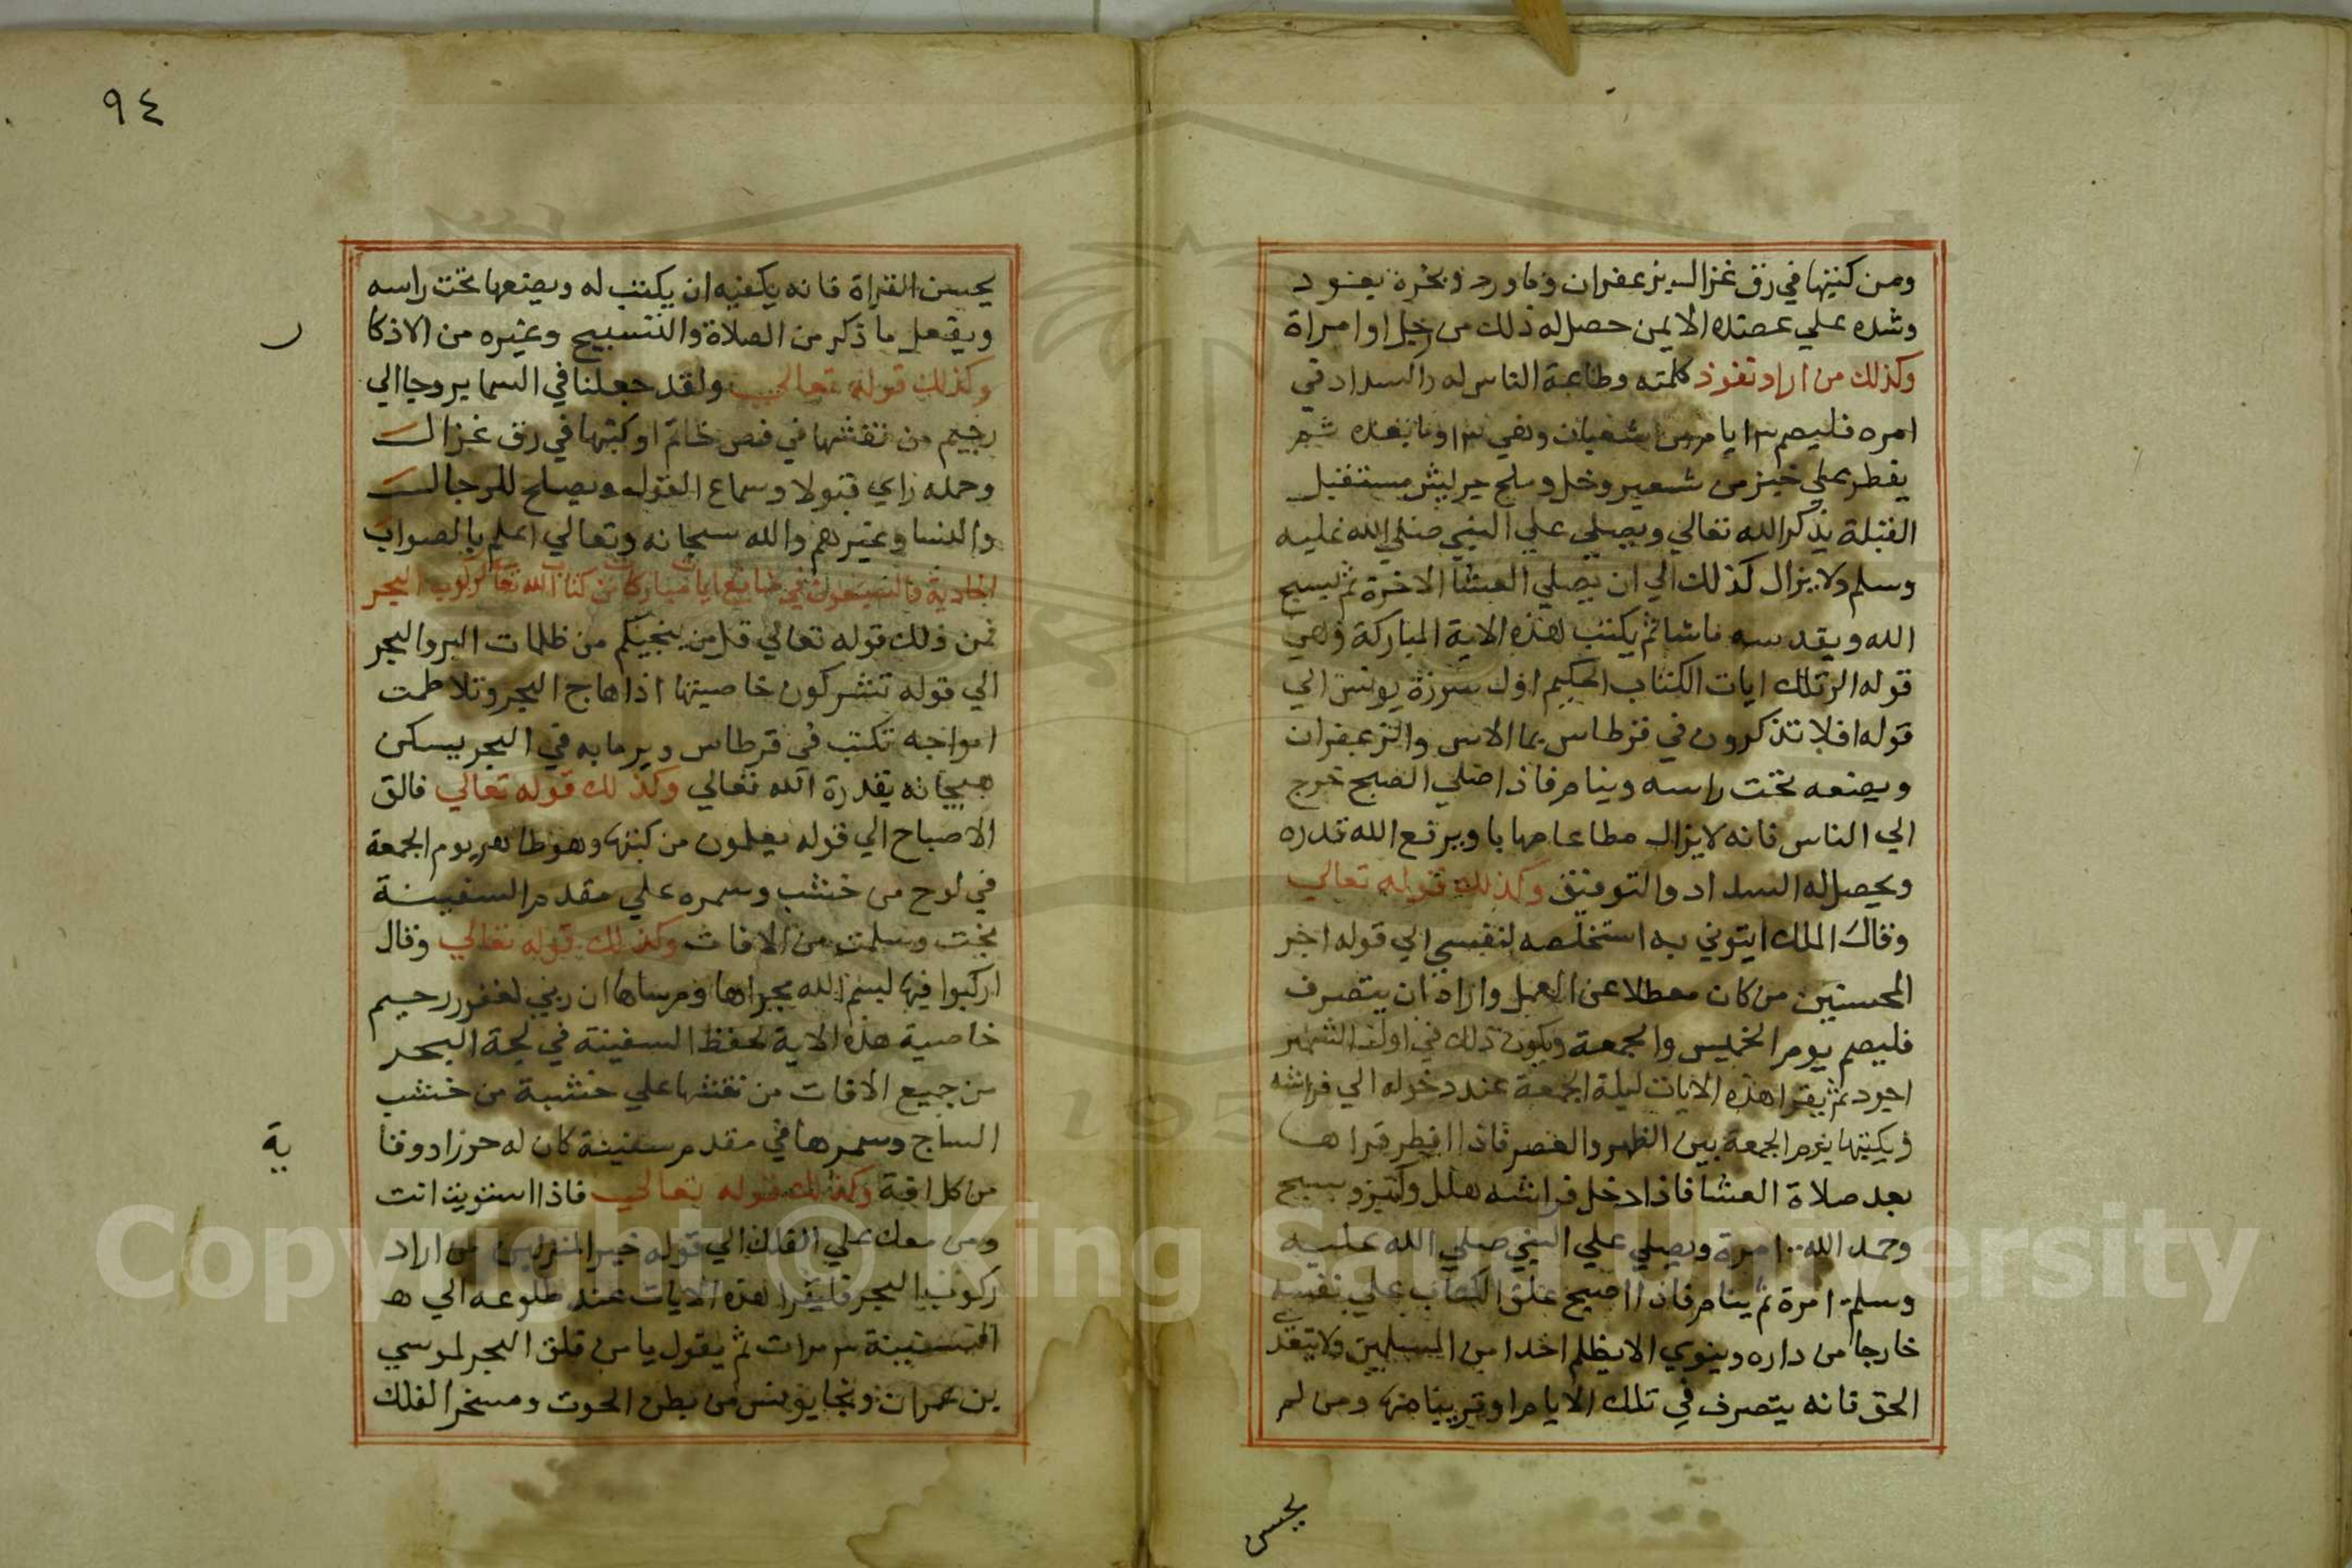 ومن كتبها في رق غزال بزعفران وماورد وبخره بعود
وشده علي عضده الايمن حصل له ذلك من رجل او امراة
وكذلك من اراد نفوذ كلمته وطاعة الناس له والسداد في
امره فليصم ٣ ايام من شعبان وهي ١٣ وما بعده ثم
يفطر علي خبز من شعير وخل وملح جريش مستقبل
القبلة يذكر الله تعالي ويصلي علي النبي صلي الله عليه
وسلم ولا يزال كذلك الي ان يصلي العشا الاخرة ثم يسبح
الله ويقدسه ماشا ثم يكتب هذه الاية المباركة وهي
قوله الر تلك ايات الكتاب الحكيم اول سورة يونس الي
قوله افلا تذكرون في قرطاس بما الاس والزعفران
ويضعه تحت راسه وينام فاذا صلي الصبح خرج
الي الناس فانه لا يزال مطاعا مهابا ويرفع الله قدره
ويحصل له السداد والتوفيق وكذلك قوله تعالي
وقال الملك ايتوني به استخلصه لنفسي الي قوله اجر
المحسنين من كان معطلا عن العمل واراد ان يتصرف
فليصم يوم الخميس والجمعة ويكون ذلك في اول الشهر
اجود ثم يقرا هذه الايات ليلة الجمعة عند دخوله الي فراشه
ويكتبها يوم الجمعة بين الظهر والعصر فاذا افطر قراها
بعد صلاة العشا فاذا دخل فراشه هلل وكبر وسبح
وحمد الله ١٠٠ مرة ويصلي علي النبي صلي الله عليه
وسلم ١٠٠ مرة ثم ينام فاذا اصبح علق الكتاب علي نفسه
خارجا من داره وينوي الا يظلم احدا من المسلمين ولا يتعدي
الحق فانه يتصرف في تلك الايام او قريبا منها ومن لم
يحسن
٩٤
يحسن القراة فانه يكفيه ان يكتب له ويضعها تحت راسه
ويفعل ما ذكر من الصلاة والتسبيح وغيره من الاذكا
ر
وكذلك قوله تعالي ولقد جعلنا في السما بروجا الي
رجيم من نقشها في فص خاتم او كتبها في رق غزال
وحمله راي قبولا وسماع القول ويصلح للرجال
والنسا وغيرهم والله سبحانه وتعالي اعلم بالصواب
من كتاب الله تعالي لركوب البحر
فمن ذلك قوله تعالي قل من ينجيكم من ظلمات البر والبحر
الي قوله تشركون خاصيتها اذا هاج البحر وتلاطمت
امواجه تكتب في قرطاس ويرما به في البحر يسكن
هيجانه بقدرة الله تعالي وكذلك قوله تعالي فالق
الاصباح الي قوله يعلمون من كتبها وهو طاهر يوم الجمعة
في لوح من خشب وسمره علي مقدم السفينة
نجت وسلمت من الافات وكذلك قوله تعالي وقال
اركبوا فيها بسم الله مجراها ومرساها ان ربي لغفور رحيم
خاصية هذه الاية لحفظ السفينة في لجة البحر
من جميع الافات من نقشها علي خشبة من خشب
الساج وسمرها في مقدم سفينة كان له حرزا ووقا
ية
من كل افة وكذلك قوله تعالي فاذا استويت انت
ومن معك علي الفلك الي قوله خير المنزلين من اراد
ركوب البحر فليقرا هذه الايات عند طلوعه الي ه
السفينة ٣ مرات ثم يقول يا من فلق البحر لموسي
بن عمران ونجا يونس من بطن الحوت ومسخر الفلك
Copyright © King Saud University
195